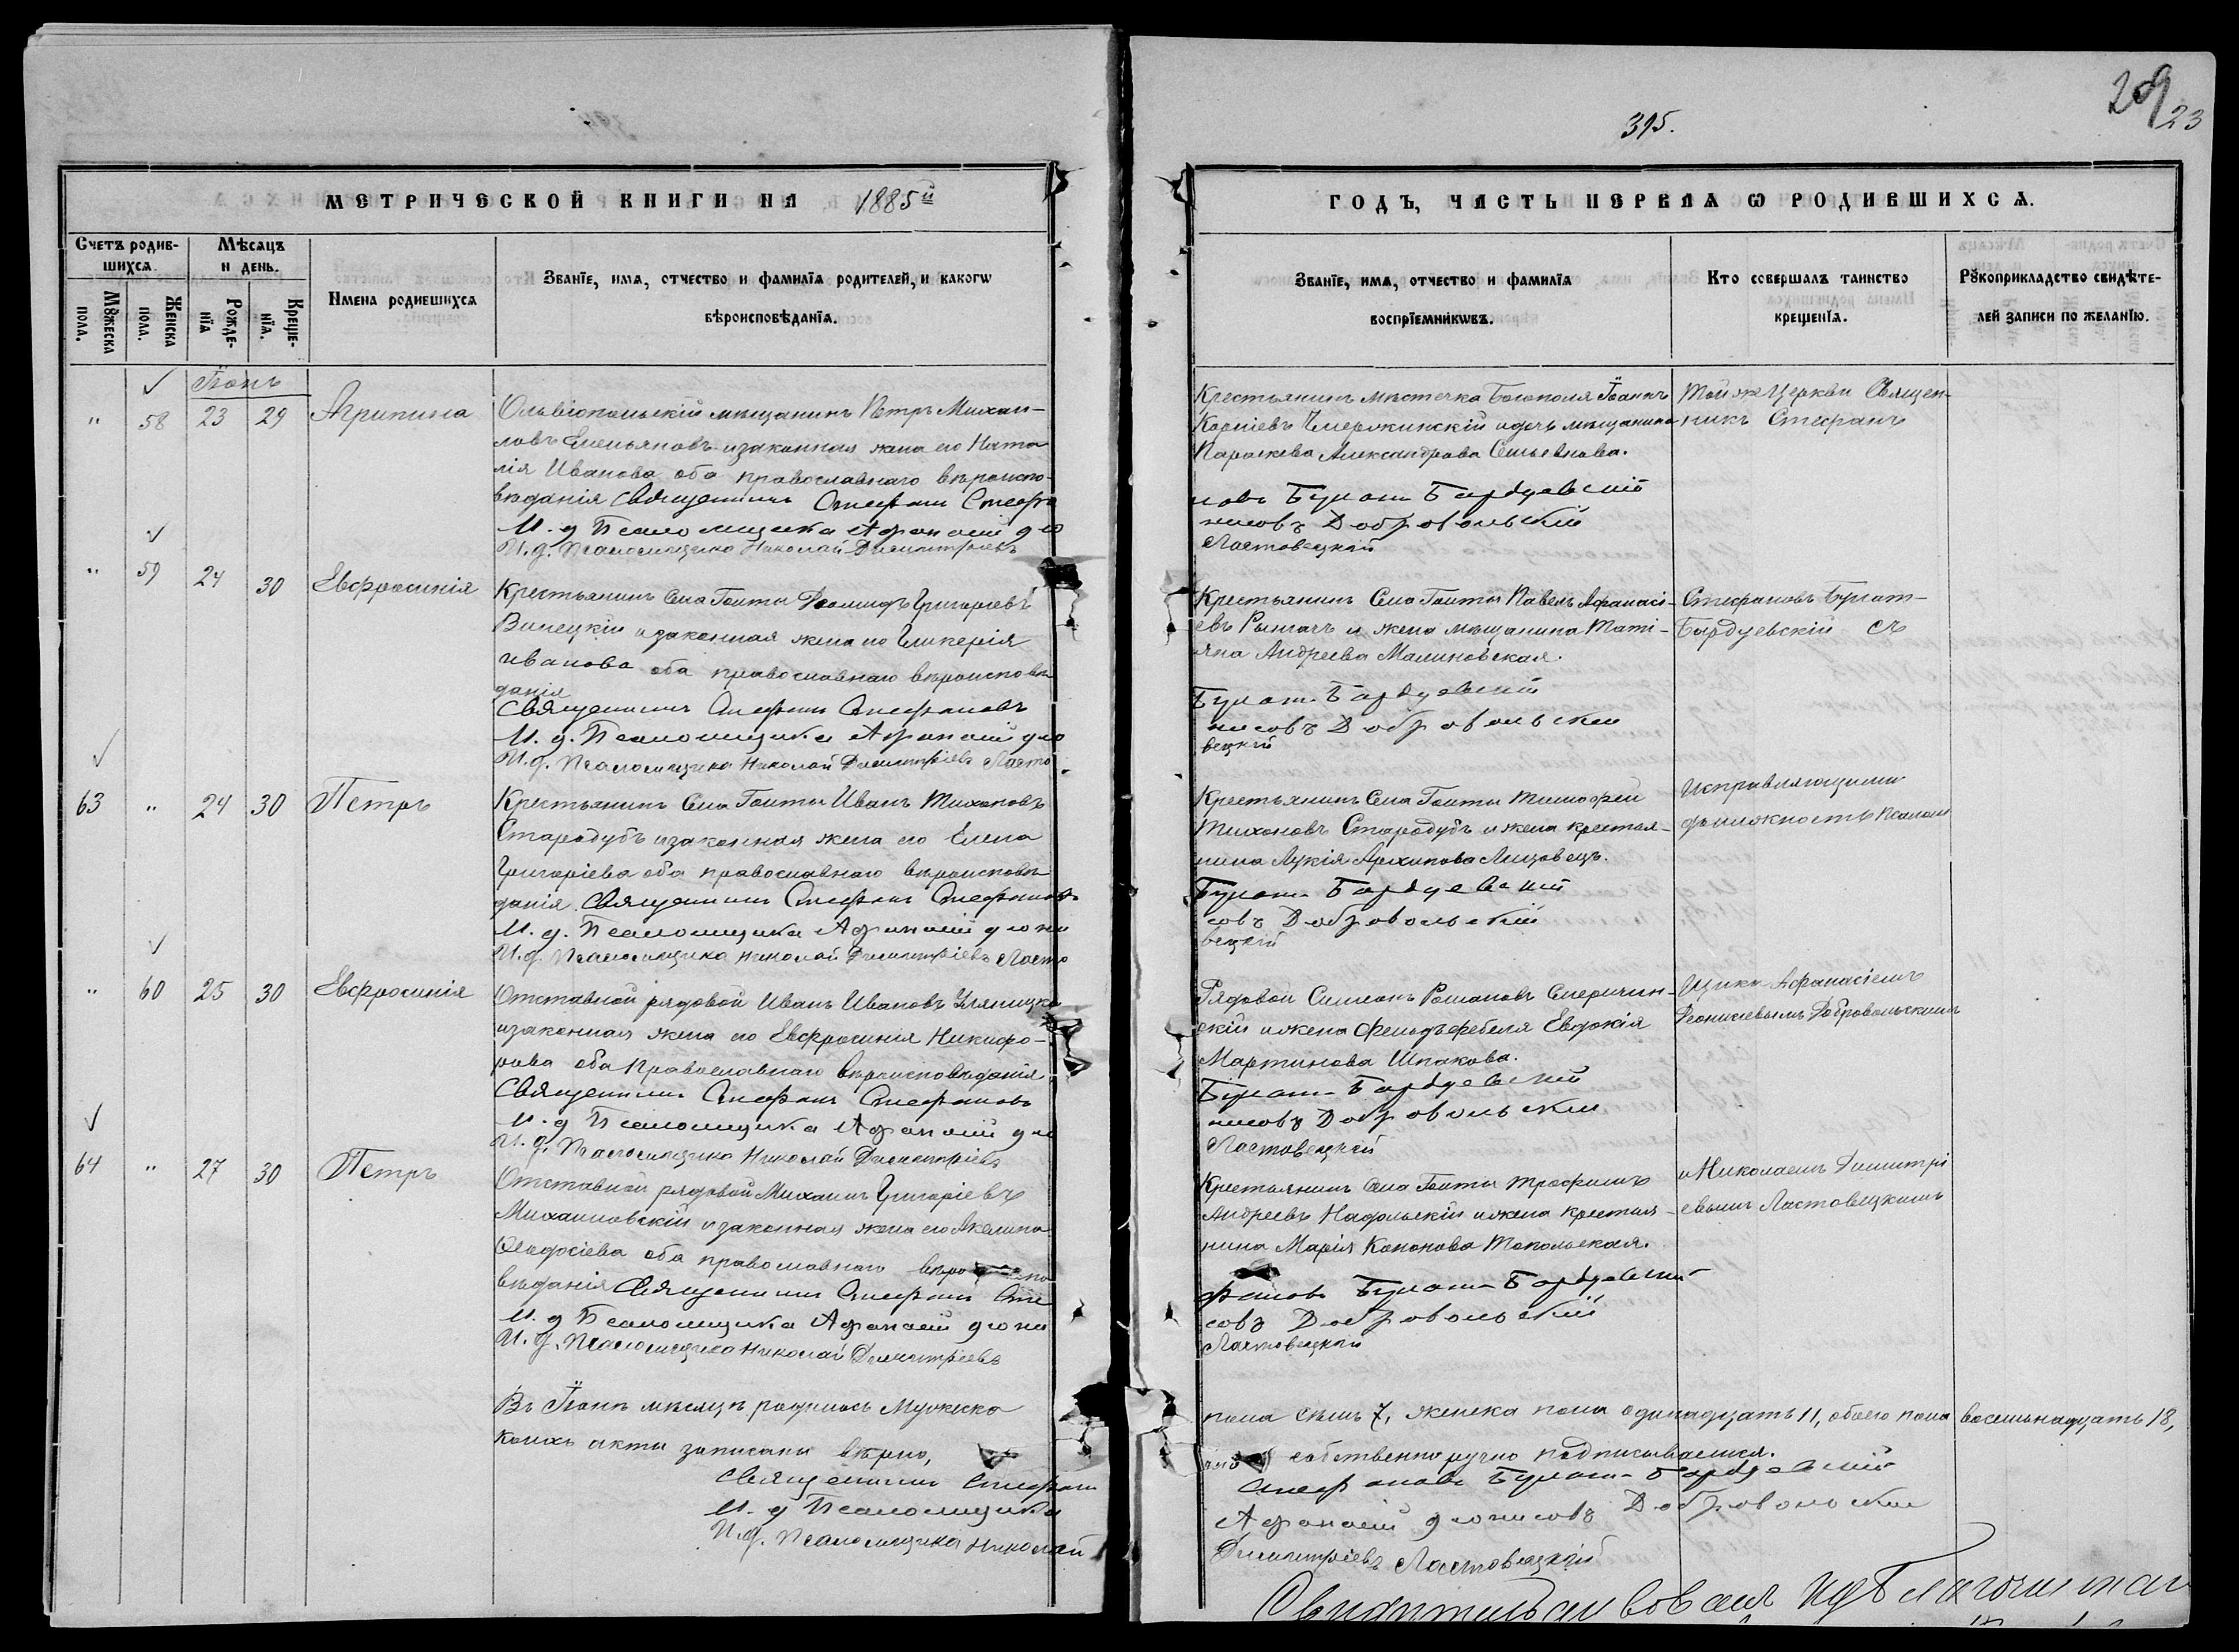 209
23
315.
МЕТРИЧЕСКОЙ КНИГИ НА 1885й
ГОДЪ, ЧАСТЬ ПЕРВАЯ Ѡ РОДИВШИХСѦ.
Счетъ родив-
шихсѧ.
Мѣсѧцъ
и день.
Мꙋжеска
пола.
Женска
пола.
Рожде-
нїѧ
Креще-
нїѧ.
Имена родившихсѧ
Званїе, имѧ, отчество и фамилїѧ родителей, и какогѡ
вѣроисповѣданїѧ.
Званїе, имѧ, отчество и фамилїѧ
воспрїемникѡвъ.
Кто совершалъ таинство
крещенїѧ.
Рꙋкоприкладство свидѣте-
лей записи по желанїю.
Іюнь
" 58 23 29 Агрипина
Ольвіопольскій мѣщанинъ Петръ Михаи-
ловъ Емельяновъ и законная жена его Ната
лія Иванова оба православнаго вѣроиспо-
вѣданія Священникъ Стефанъ Стефа
И. д Псаломщика Афанасій діо
И. д. Псаломщика Николай Димитріевъ
Крестьянинъ мѣстечка Богополя Іоаннъ
Корніевъ и дочь мѣщанина
Параскева Александрова
новъ Булат-Бардуевскій
нисовъ Добровольскій
Ластовецкій
Той же Церкви Священ-
никъ Стефанъ
" 59 24 30 Евфросинія
Крестьянинъ Села Голты Григоріевъ
Винецкій и законная жена его Гликерія
Иванова оба православнаго вѣроисповѣ
данія
Священникъ Стефанъ Стефановъ
И. д. Псаломщика Афанасій діо
И. д. Псаломщика Николай Димитріевъ Ласто
Крестьянинъ Села Голты Павелъ Афанасі-
евъ и жена мѣщанина Таті-
яна Андреева Малиновская.
Булат-Бардуевскій
нисовъ Добровольскій
вецкій
Стефановъ Булат-
Бардуевскій съ
63 " 24 30 Петръ
Крестьянинъ Села Голты Иванъ Тихоновъ
Стародубъ и законная жена его Елена
Григоріева оба православнаго вѣроисповѣ
данія. Священникъ Стефанъ Стефановъ
И. д. Псаломщика Афанасій діони
И. д. Псаломщика Николай Димитріевъ Ласто
Крестьянинъ Села Голты Тимофей
Тихоновъ Стародубъ и жена крестья-
нина Лукія Архипова
Булат-Бардуевскій
совъ Добровольскій
вецкій
Исправляющими
должность Псалом
" 60 25 30 Евфросинія
Отставной рядовой Иванъ Ивановъ
и законная жена его Евфросинія Никифо-
рова оба Православнаго вѣроисповѣданія
Священникъ Стефанъ Стефановъ
И. д Псаломщика Афанасій діо
И. д. Псаломщика Николай Димитріевъ
Рядовой Симеонъ Романовъ
скій и жена фельдфебеля Евдокія
Мартинова Шпакова.
Булат-Бардуевскій
нисовъ Добровольскій
Ластовецкій
щика Афанасіемъ
Діонисіевымъ Добровольскимъ
64 " 27 30 Петръ
Отставной рядовой Михаилъ Григоріевъ
Михаиловскій и законная жена его Акелина
Феодосіева оба православнаго вѣро спо
вѣданія Священникъ Стефанъ Сте
И. д Псаломщика Афанасій діони
И. д. Псаломщика Николай Димитріевъ
Крестьянинъ Села Голты Трофимъ
Андреевъ Надольскій и жена крестья-
нина Марія Кононова Топольская.
фановъ Булат-Бардуевскій
совъ Добровольскій
Ластовецкій
и Николаемъ Димитрі
евымъ Ластовецкимъ
Въ Іюнѣ мѣсяцѣ родилось Мужеска
пола семь 7, женска пола одинадцать 11, обоего пола восемьнадцать 18,
коихъ акты записаны вѣрно,
собственноручно подписываемся.
Священникъ Стефанъ
Стефановъ Булат-Бардуевскій
И. д Псаломщика
Афанасій діонисовъ Добровольскій
И. д. Псаломщика Николай
Димитріевъ Ластовецкій